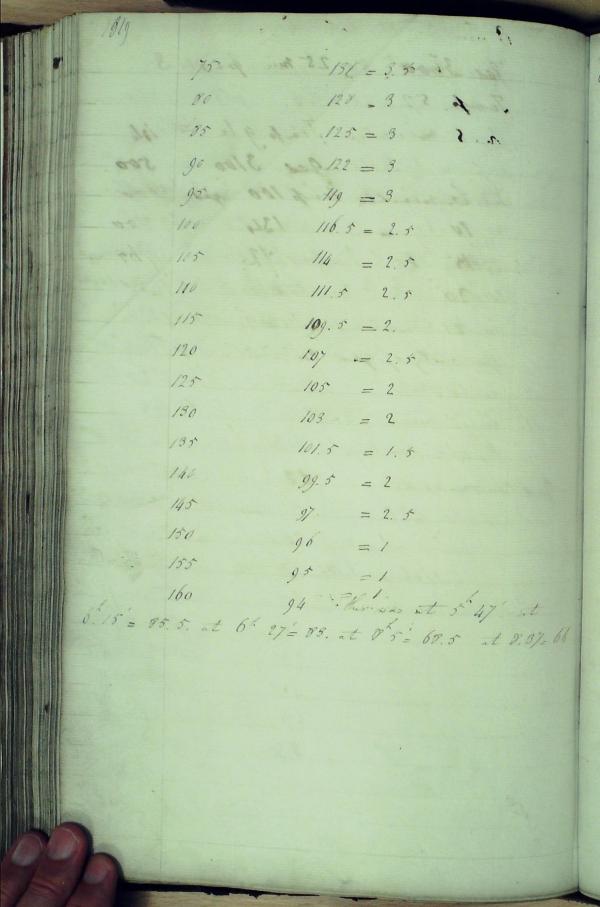 1819
75 131 = 3.5
80 128 = 3
85 125 = 3
90 122 = 3
95 119 = 3
100 116.5 = 2.5
105 114 = 2.5
110 111.5 2.5
115 109.5 = 2.
120 107 = 2.5
125 105 = 2
130 103 = 2
135 101.5 = 1.5
140 99.5 = 2
145 97 = 2.5
150 96 = 1
155 95 = 1
160 94 1 this was at 5h 47' at
6h.15' = 85.5. at 6h 27' = 83. at 8h 5' = 68.5 at 8.37 = 66